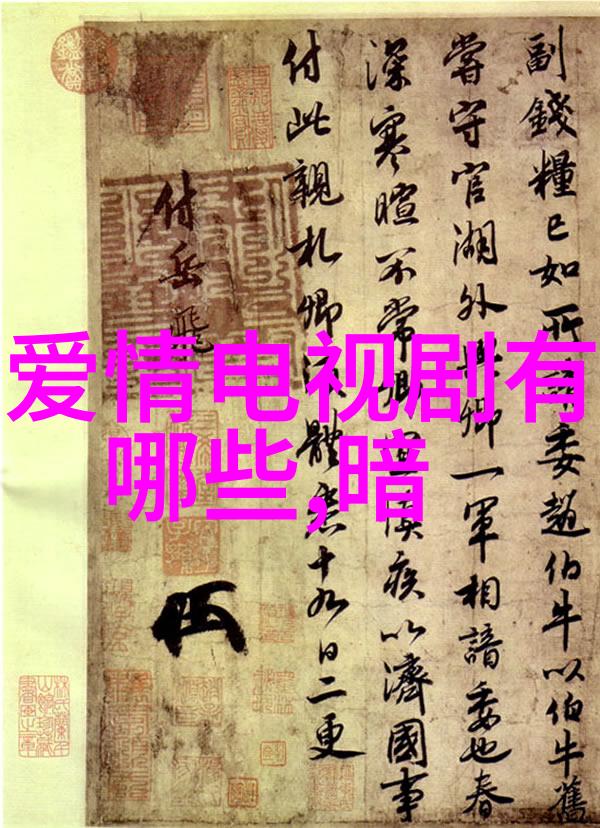 爱情电视剧有
哪些,暗
副錢糧已如所請委趙伯牛以伯牛舊
嘗守官湖外與卿一軍相諳委也春
深寒暄不常卿宜慎疾以濟國事
付此親札卿須體悉十九日二更
付岳飛